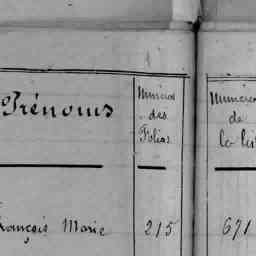 Prénoms
Numéros
des
Folios
Numéros
de
la list
François Marie
215
671